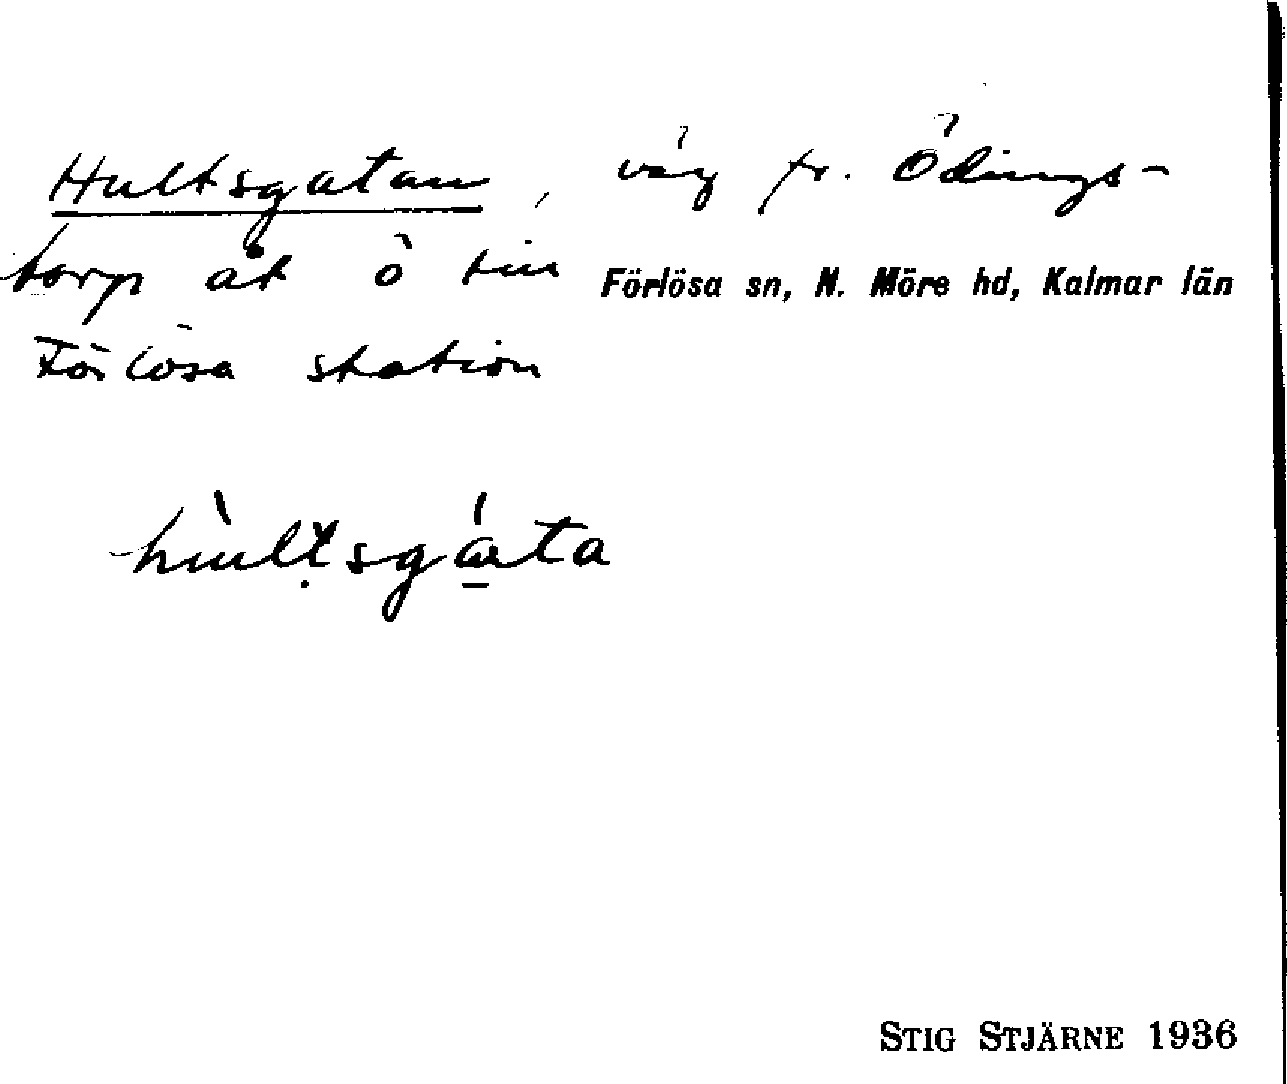 Hultsgatan, väg fr. Ödings-
torp åt ö till
Förlösa sn, N. Möre hd, Kalmar län
Förlösa station
STIG STJÄRNE 1936